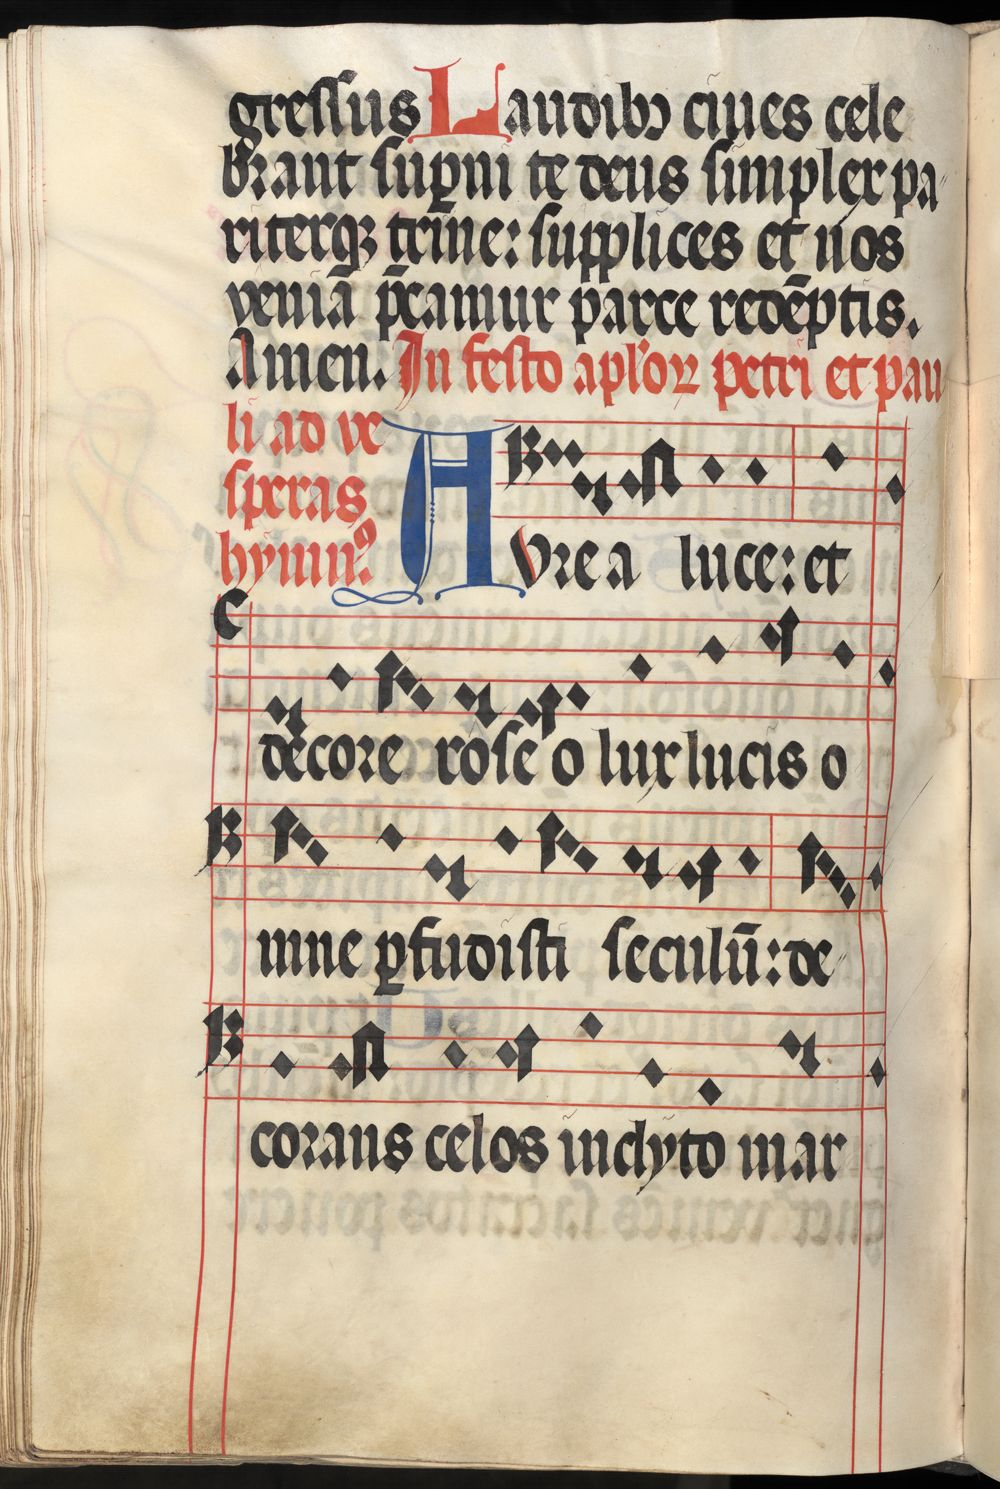 gressus Laudibꝯ ciues cele
brant suꝑni te deus simplex pa
riterqꝫ trine: supplices et nos
veniā p̄camur parce redēptis.
Amen. In festo apl'oꝝ petri et pau
li ad ve
speras
hymnꝰ
AVrea luce: et
decore roseo lux lucis o
mne ꝑfudisti seculū: de
corans celos inclyto mar